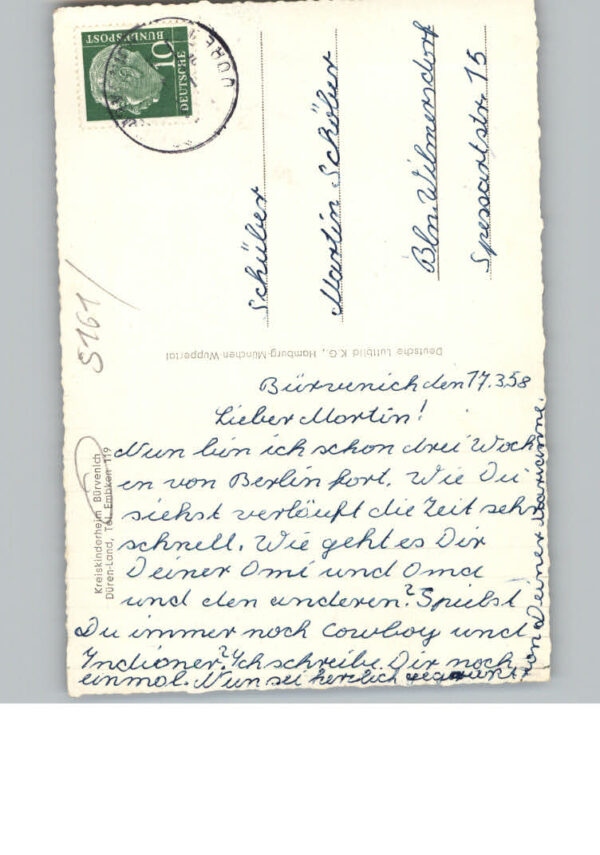 10
DEUTSCHE
BUNDESPOST
Schüler
Martin Schöber
Bln. Wilmersdorf
Spessartstr. 15
5161/
Deutsche Luftbild K.G., Hamburg-München-Wuppertal
Kreiskinderheim Bürvenich
Düren-Land, Tel. Embken 119
Bürvenich den 17.3.58
Lieber Martin!
Nun bin ich schon drei Woch
en von Berlin fort. Wie Du
siehst verläuft die Zeit sehr
schnell. Wie geht es Dir
Deiner Omi und Oma
und den anderen? Spielst
Du immer noch Cowboy und
Indianer? Ich schreibe Dir noch
einmal. Nun sei herzlich gegrüßt
von Deiner Marianne.